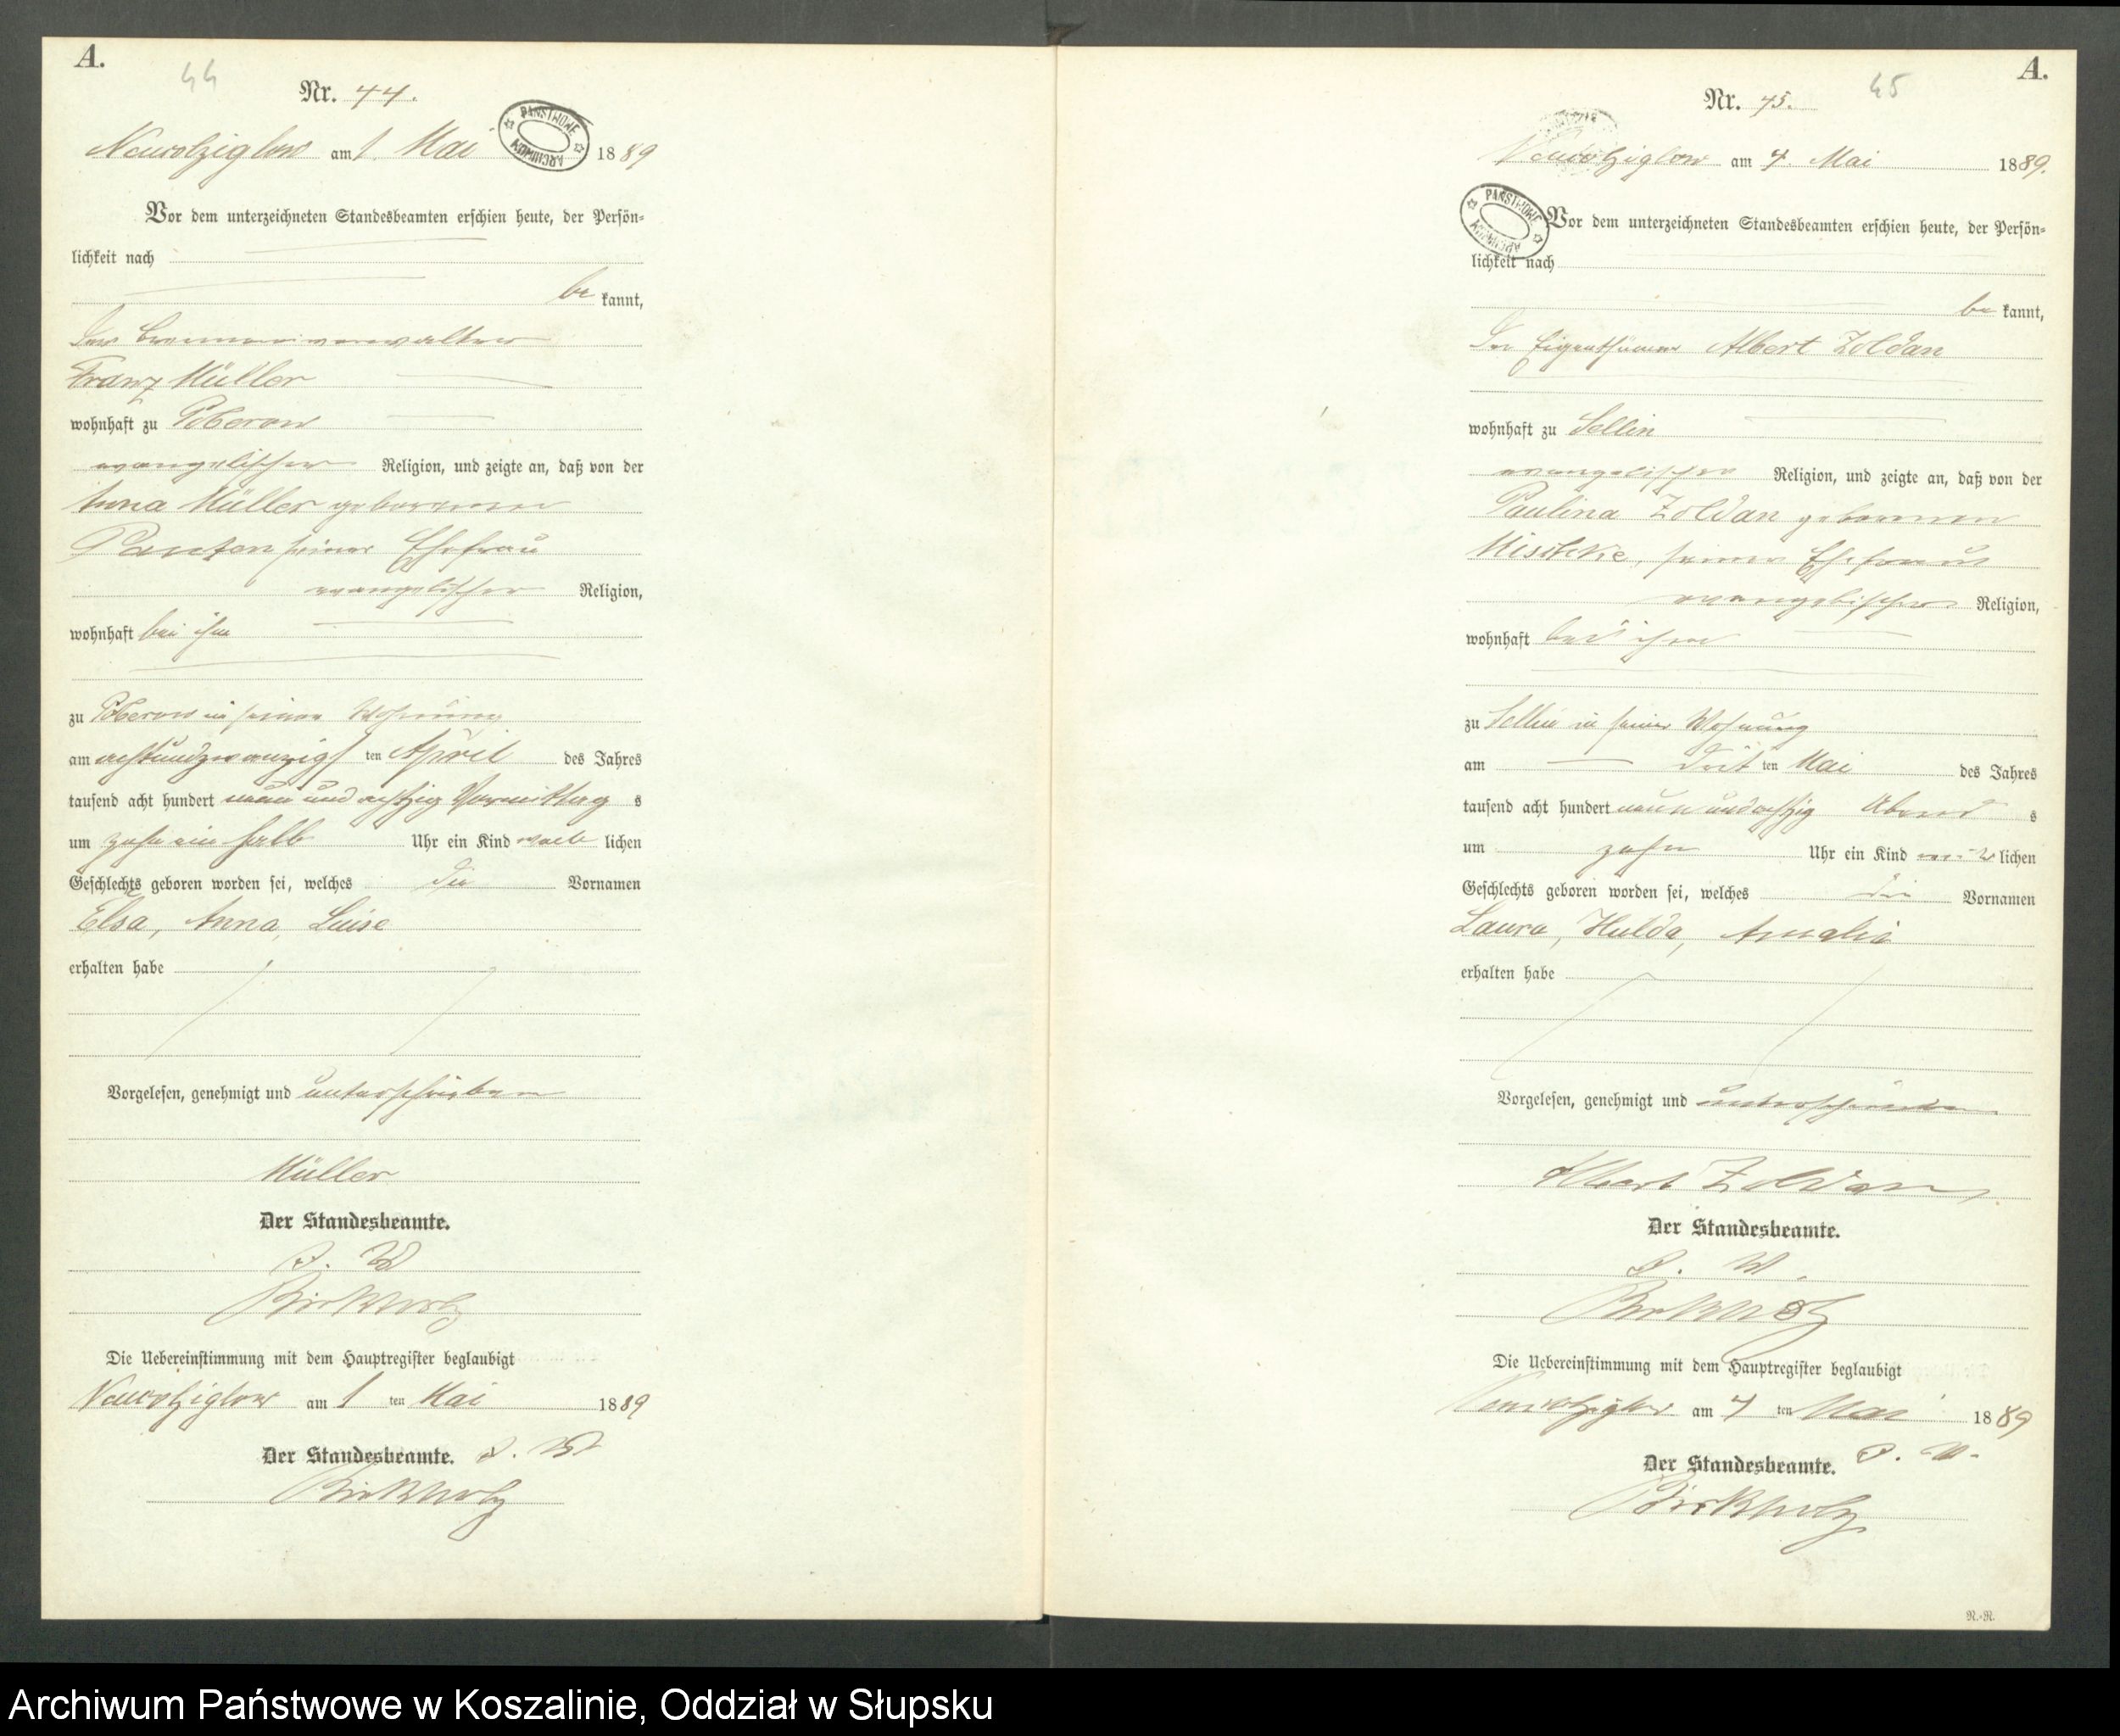 A.
44
Nr. 44.
Neuwolziglow am 1. Mai 1889
PAŃSTWOWE ARCHIWUM
Vor dem unterzeichneten Standesbeamten erschien heute, der Persön-
lichkeit nach
be kannt,
der Brennereiverwalter
Franz Müller
wohnhaft zu Poberow
evangelischer Religion, und zeigte an, daß von der
Anna Müller geborenen
seiner Ehefrau
evangelischer Religion,
wohnhaft bei ihm
zu Poberow in seiner Wohnung
am achtundzwanzigs ten April des Jahres
tausend acht hundert neun und achtzig Vormittag s
um zehn ein halb Uhr ein Kind weib lichen
Geschlechts geboren worden sei, welches die Vornamen
Elsa, Anna, Luise
erhalten habe
Vorgelesen, genehmigt und unterschrieben
Müller
Der Standesbeamte.
J. V.
Birkholz
Die Uebereinstimmung mit dem Hauptregister beglaubigt
Neuwolziglow am 1 ten Mai 1889
Der Standesbeamte. J. V.
Birkholz
A.
45
Nr. 45.
Neuwolziglow am 4. Mai 1889.
PAŃSTWOWE ARCHIWUM
Vor dem unterzeichneten Standesbeamten erschien heute, der Persön-
lichkeit nach
be kannt,
der Eigenthümer Albert Zoldan
wohnhaft zu Sellin
evangelischer Religion, und zeigte an, daß von der
Paulina Zoldan geborenen
seiner Ehefrau
evangelischer Religion,
wohnhaft bei ihm
zu Sellin in seiner Wohnung
am drit ten Mai des Jahres
tausend acht hundert neun und achtzig Abend s
um zehn Uhr ein Kind weib lichen
Geschlechts geboren worden sei, welches die Vornamen
Laura, Hulda, Amalie
erhalten habe
Vorgelesen, genehmigt und unterschrieben
Albert Zoldan
Der Standesbeamte.
J. V.
Birkholz
Die Uebereinstimmung mit dem Hauptregister beglaubigt
Neuwolziglow am 4 ten Mai 1889
Der Standesbeamte. J. V.
Birkholz
R.-R.
Archiwum Państwowe w Koszalinie, Oddział w Słupsku